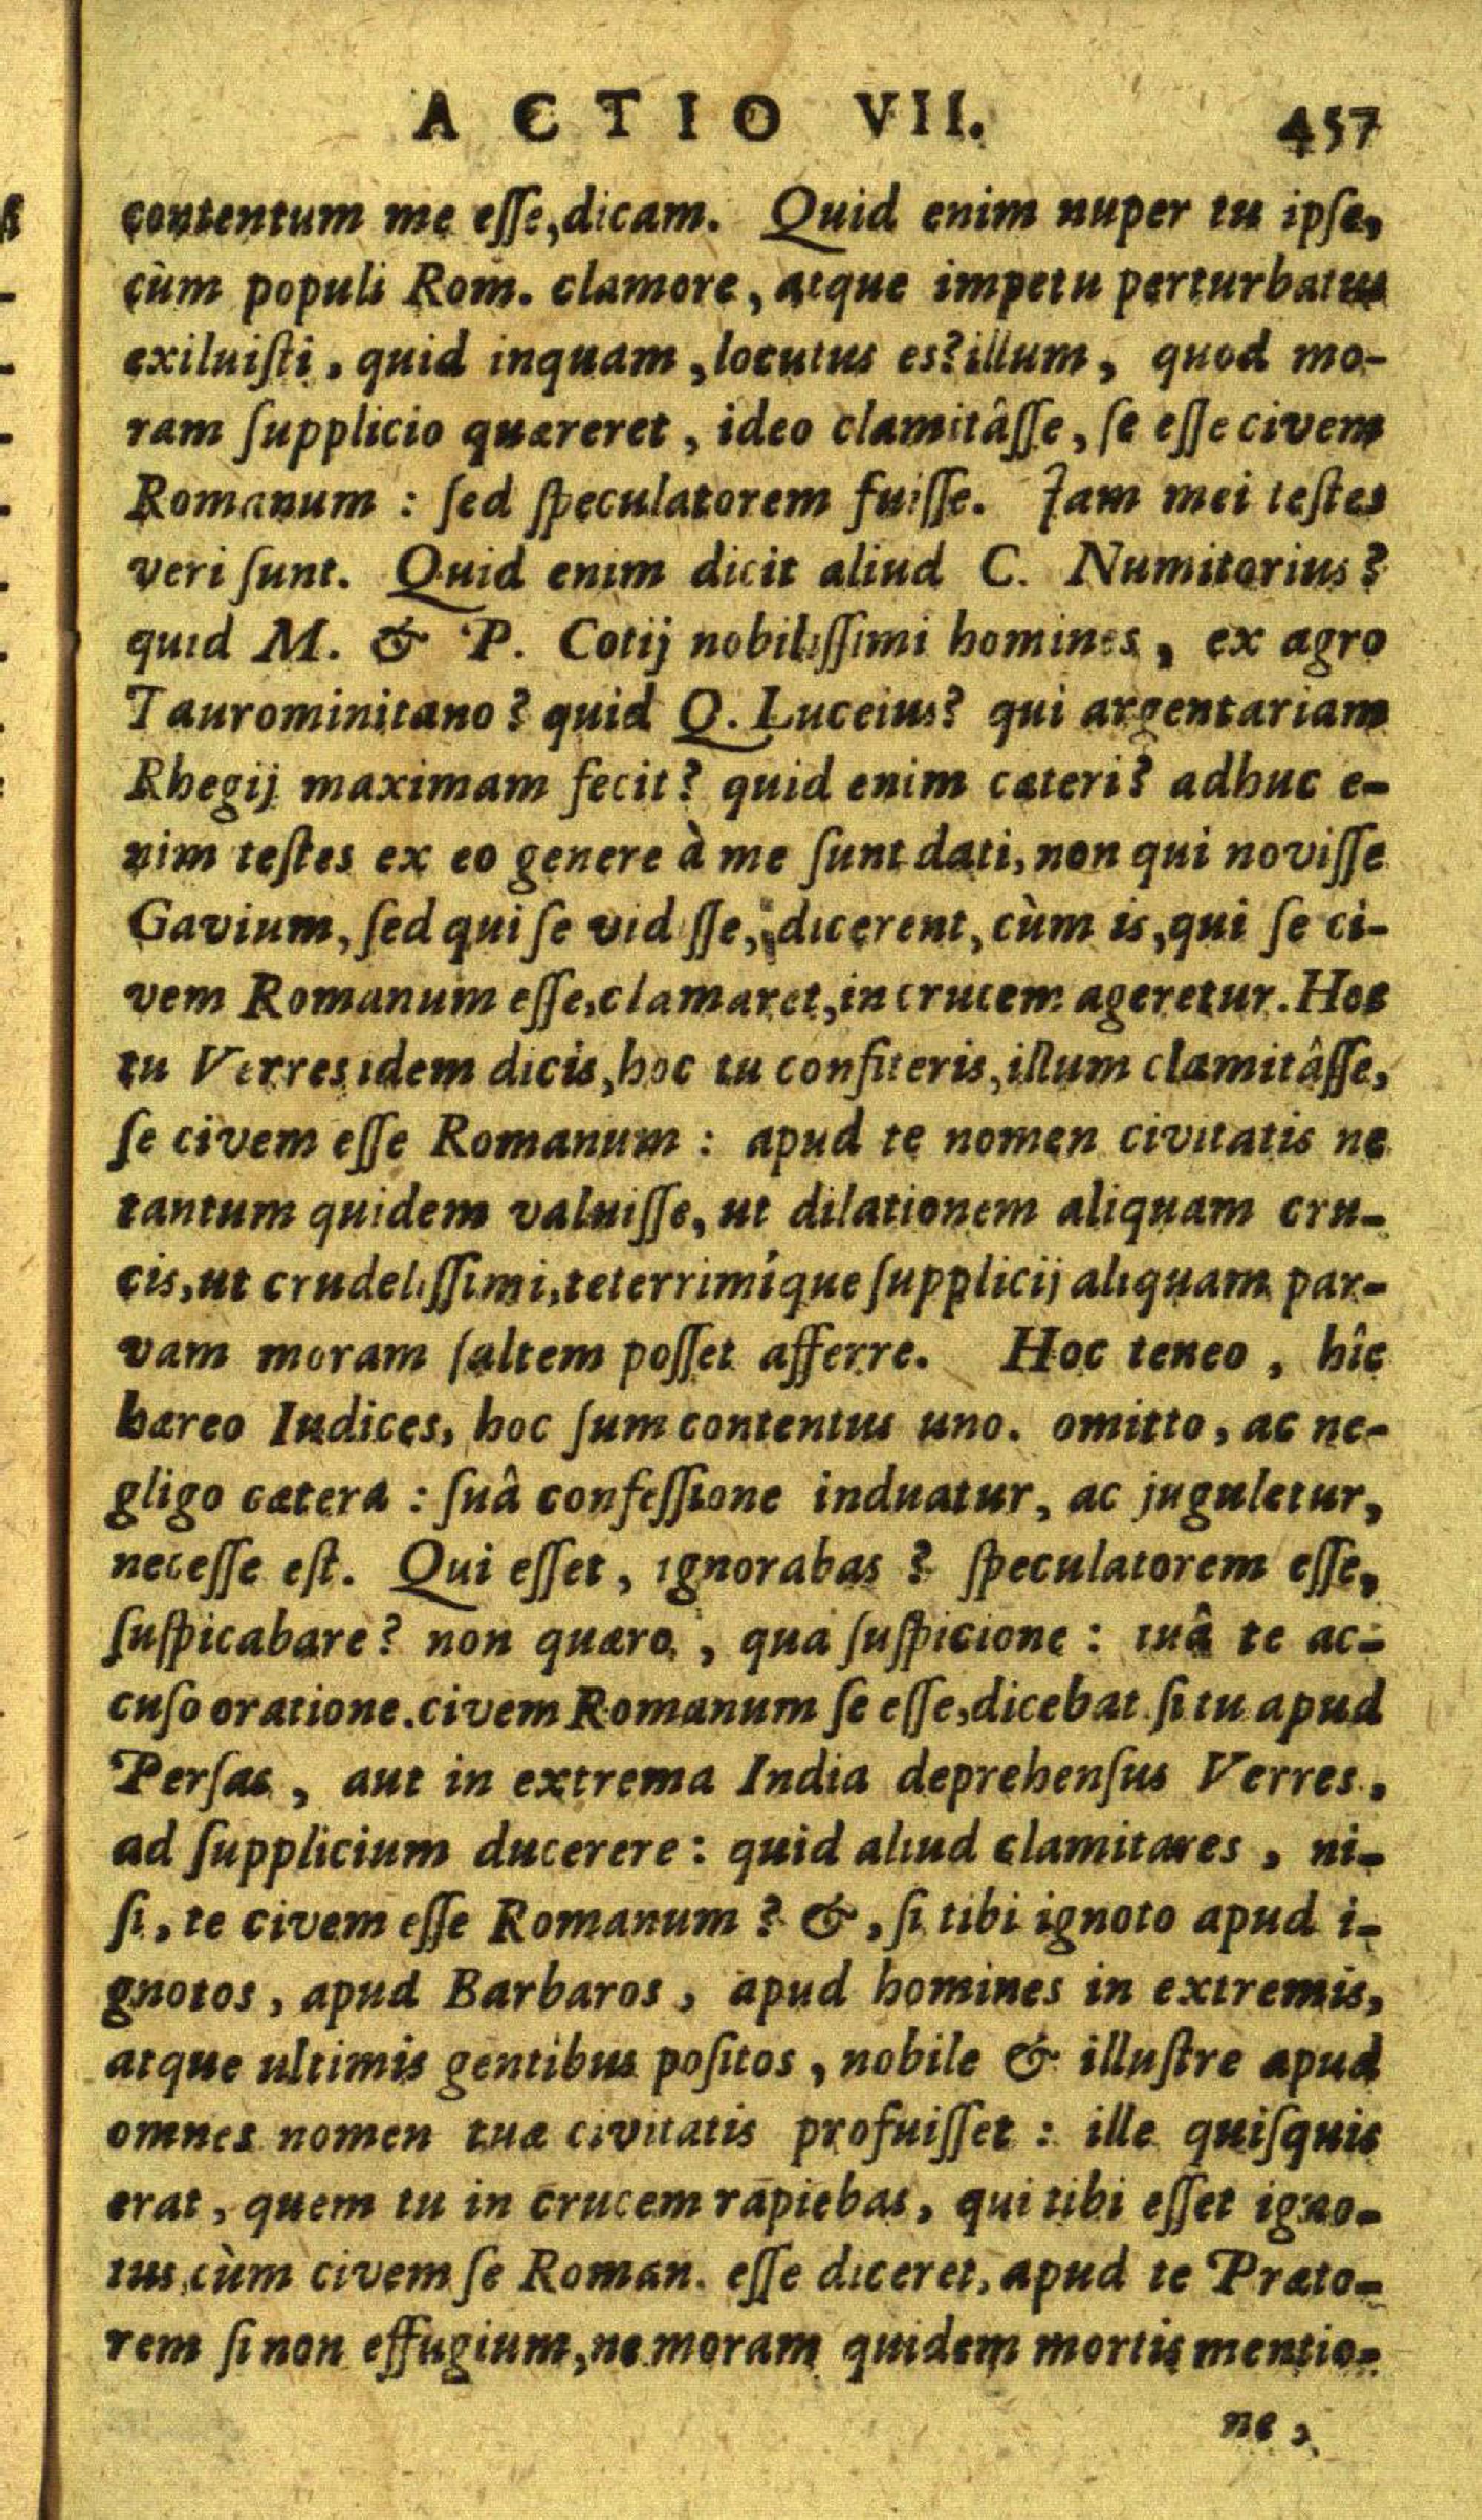 ACTIO VII. 457
contentum me eſſe, dicam. Quid enim nuper tu ipſe,
cùm populi Rom. clamore, atque impetu perturbatus
exiluiſti, quid inquam, locutus es? illum, quod mo-
ram ſupplicio quæreret, ideo clamitâſſe, ſe eſſe civem
Romanum : ſed ſpeculatorem fuiſſe. Jam mei teſtes
veri ſunt. Quid enim dicit aliud C. Numitorius?
quid M. & P. Cotij nobiliſſimi homines, ex agro
Taurominitano? quid Q. Luceius? qui argentariam
Rhegij maximam fecit? quid enim cæteri? adhuc e-
nim teſtes ex eo genere à me ſunt dati, non qui noviſſe
Gavium, ſed qui ſe vid ſſe, dicerent, cùm is, qui ſe ci-
vem Romanum eſſe, clamaret, in crucem ageretur. Hoc
tu Verres idem dicis, hoc tu confiteris, illum clamitâſſe,
ſe civem eſſe Romanum : apud te nomen civitatis ne
tantum quidem valuiſſe, ut dilationem aliquam cru-
cis, ut crudeliſſimi, teterrimíque ſupplicij aliquam par-
vam moram ſaltem poſſet afferre. Hoc teneo, hîc
hæreo Iudices, hoc ſum contentus uno. omitto, ac ne-
gligo cætera : ſuâ confeſſione induatur, ac juguletur,
neceſſe eſt. Qui eſſet, ignorabas? ſpeculatorem eſſe,
ſuſpicabare? non quæro, qua ſuſpicione : tuâ te ac-
cuſo oratione. civem Romanum ſe eſſe, dicebat. ſi tu apud
Perſas, aut in extrema India deprehenſus Verres,
ad ſupplicium ducerere : quid aliud clamitares, ni-
ſi, te civem eſſe Romanum? &, ſi tibi ignoto apud i-
gnotos, apud Barbaros, apud homines in extremis,
atque ultimis gentibus poſitos, nobile & illuſtre apud
omnes nomen tuæ civitatis profuiſſet : ille quiſquis
erat, quem tu in crucem rapiebas, qui tibi eſſet igno-
tus, cùm civem ſe Roman. eſſe diceret, apud te Præto-
rem ſi non effugium, ne moram quidem mortis mentio-
ne,